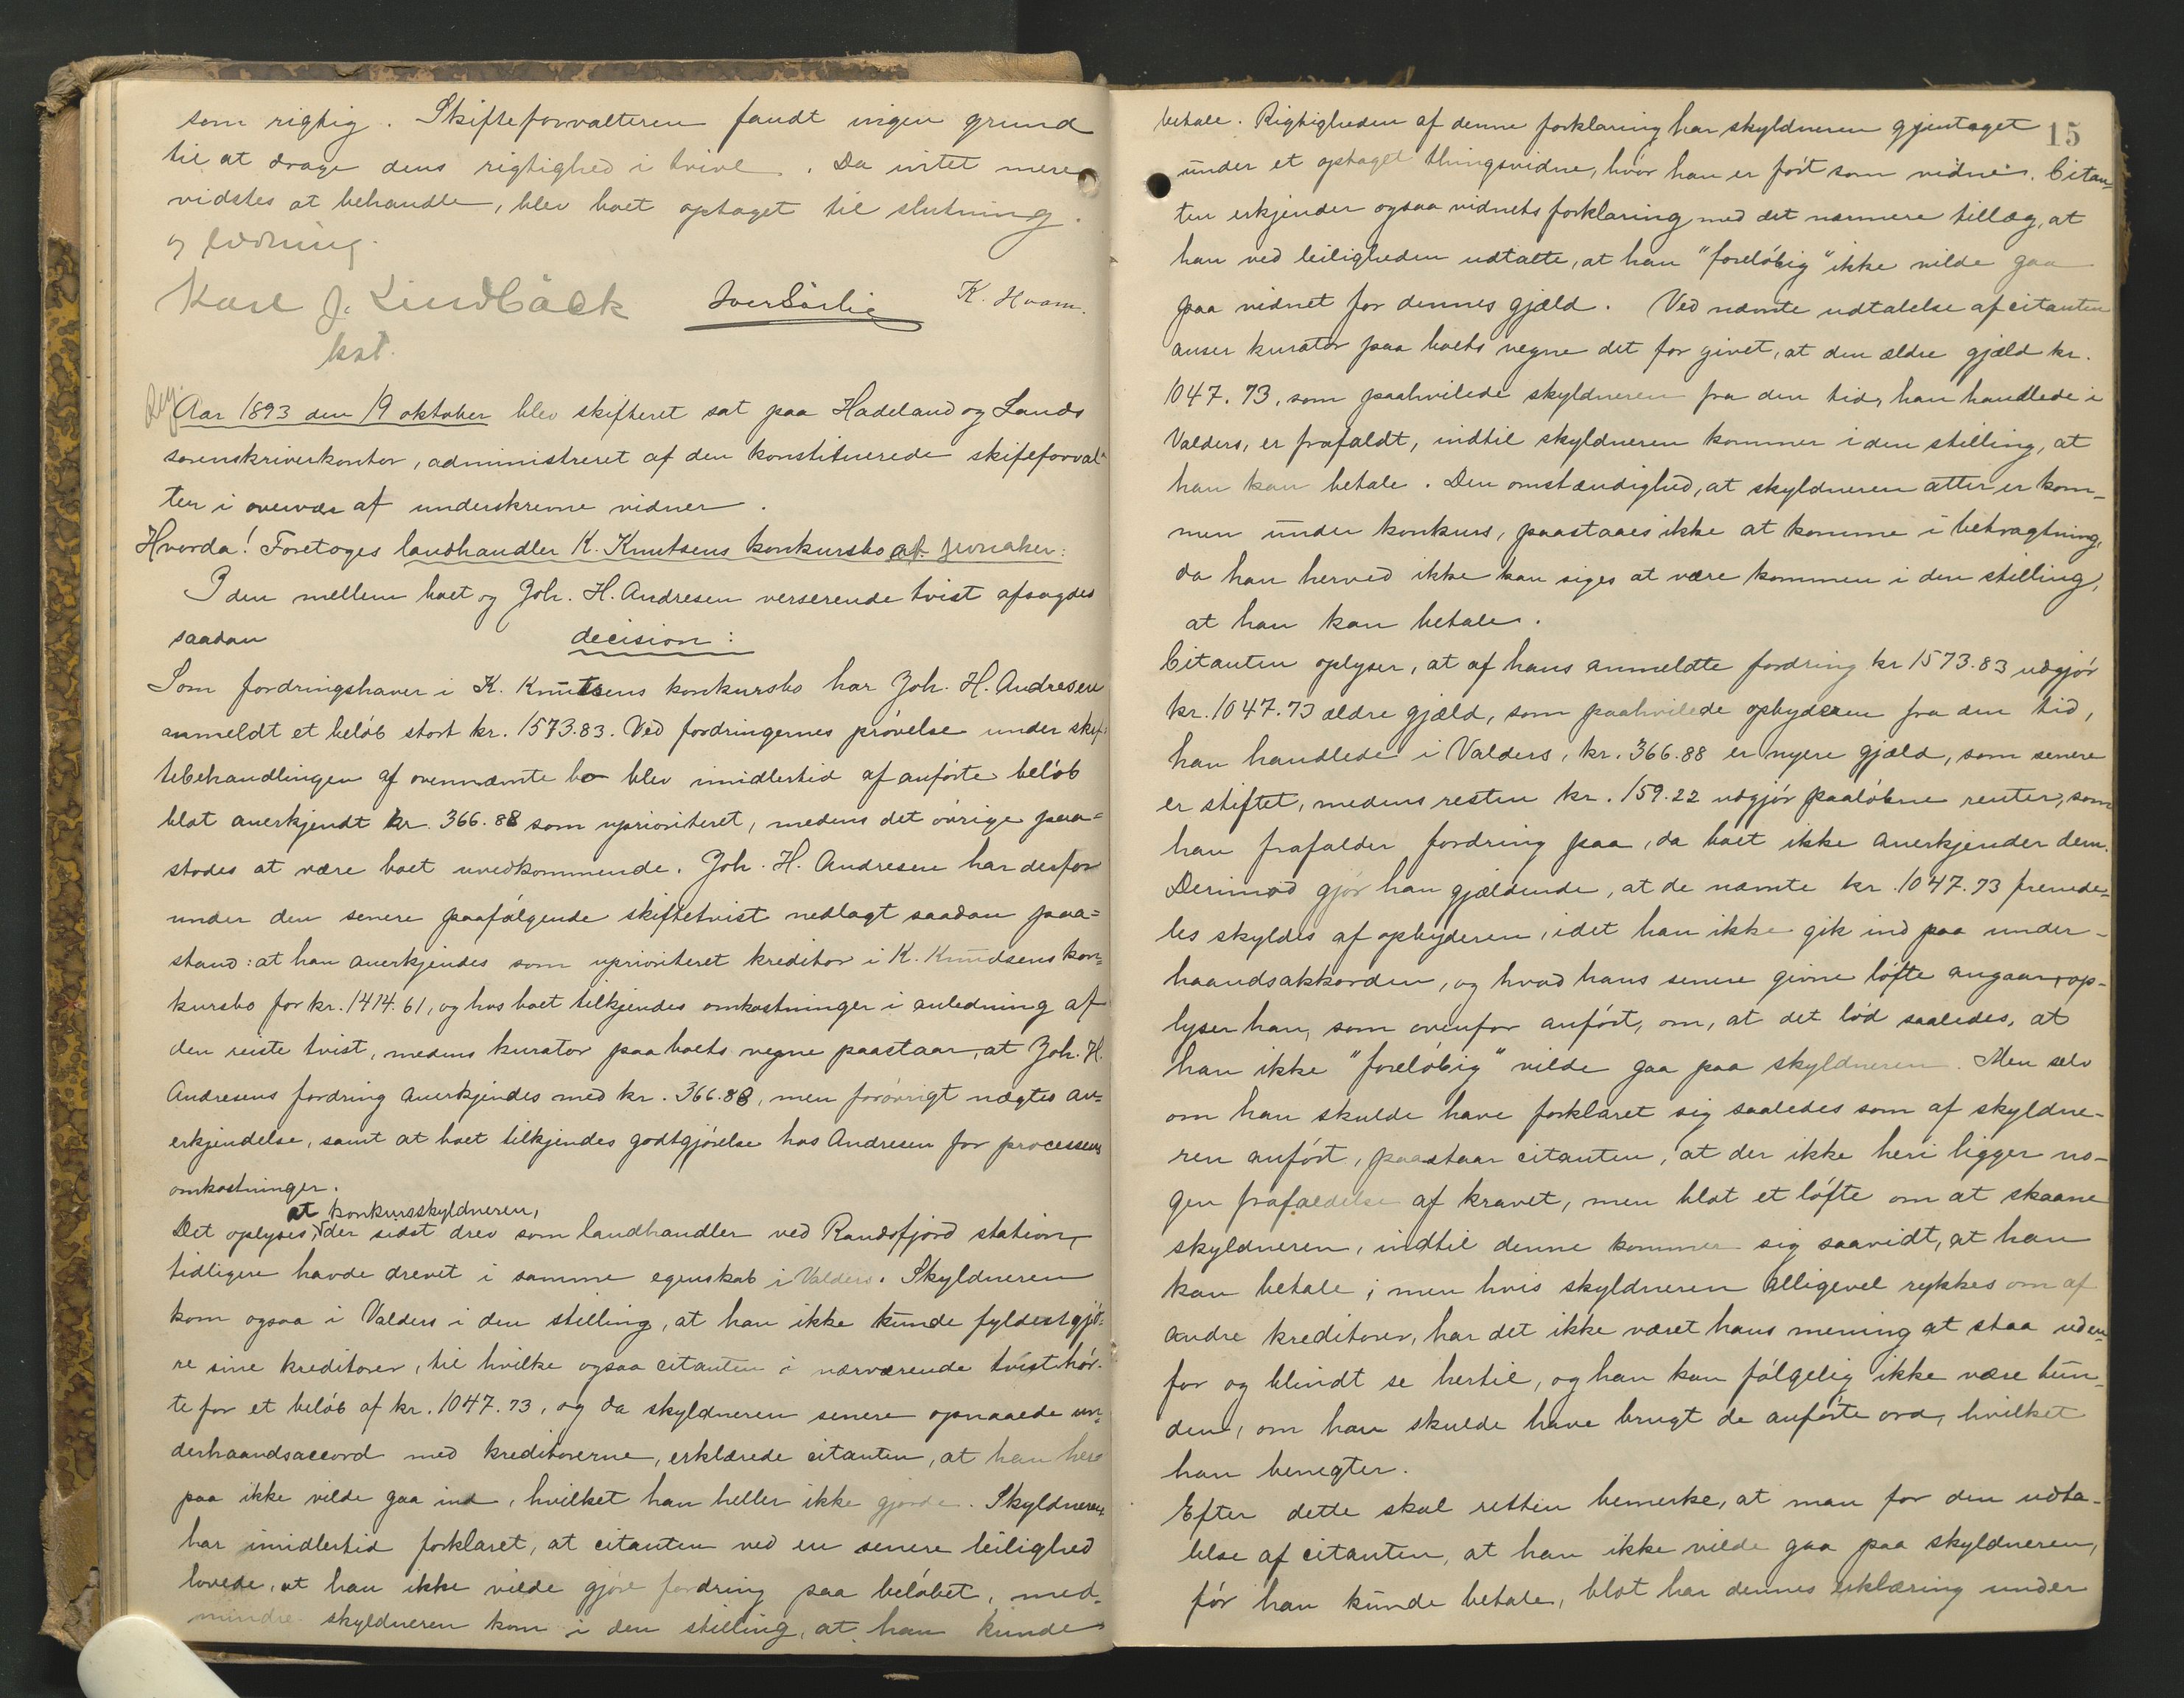 som rigtig. Skifteforvalteren fandt ingen grund
til at drage dens rigtighed i tvivl. Da intet mere
vidstes at behandle, blev boet optaget til slutning
og lodning.
Karl J. Lindbäck Iver Sörlie K. Hvam.
kst.
Aar 1893 den 19 oktober blev skifteret sat paa Hadeland og Lands
sorenskriverkontor, administreret af den konstituerede skifteforval-
ter i overvær af underskrevne vidner.
Hvorda! Foretoges landhandler K. Knutsens konkursbo af Jevnaker:
I den mellem boet og Joh. H. Andresen verserende tvist afsagdes
saadan decision:
Som fordringshaver i K. Knutsens konkursbo har Joh. H. Andresen
anmeldt et beløb stort kr. 1573.83. Ved fordringernes prøvelse under skif-
tebehandlingen af ovennævnte bo blev imidlertid af anførte beløb
blot anerkjendt kr. 366.88 som uprioriteret, medens det øvrige paa=
stodes at være boet uvedkommende. Joh. H. Andresen har derfor
under den senere paafølgende skiftetvist nedlagt saadan paa=
stand: at han anerkjendes som uprioriteret kreditor i K. Knudsens kon=
kursbo for kr. 1414.61, og hos boet tilkjendes omkostninger i anledning af
den reiste tvist, medens kurator paa boets vegne paastaar, at Joh. H.
Andresens fordring anerkjendes med kr. 366.88, men forøvrigt nægtes an=
erkjendelse, samt at boet tilkjendes godtgjørelse hos Andresen for processens
omkostninger.
at konkursskyldneren,
Det oplyses, der sidst drev som landhandler ved Randsfjord station,
tidligere havde drevet i samme egenskab i Valders. Skyldneren
kom ogsaa i Valders i den stilling, at han ikke kunde fyldestgjø-
re sine kreditorer, til hvilke ogsaa citanten i nærværende tvist hør-
te for et beløb af kr. 1047.73, og da skyldneren senere opnaaede un-
derhaandsaccord med kreditorerne, erklærede citanten, at han her
paa ikke vilde gaa ind, hvilket han heller ikke gjorde. Skyldneren
har imidlertid forklaret, at citanten ved en senere leilighed
lovede, at han ikke vilde gjøre fordring paa beløbet, med-
mindre skyldneren kom i den stilling, at han kunde
15
betale. Rigtigheden af denne forklaring har skyldneren gjentaget
under et optaget thingsvidne, hvor han er ført som vidne. Citan-
ten erkjender ogsaa vidnets forklaring med det nærmere tillæg, at
han ved leiligheden udtalte, at han "foreløbig" ikke vilde gaa
paa vidnet for dennes gjæld. Ved nævnte udtalelse af citanten
anser kurator paa boets vegne det for givet, at den ældre gjæld kr.
1047.73, som paahvilede skyldneren fra den tid, han handlede i
Valders, er frafaldt, indtil skyldneren kommer i den stilling, at
han kan betale. Den omstændighed, at skyldneren atter er kom-
men under konkurs, paastaaes ikke at komme i betragtning,
da han herved ikke kan siges at være kommen i den stilling,
at han kan betale.
Citanten oplyser, at af hans anmeldte fordring kr 1573.83 udgjør
kr. 1047.73 ældre gjæld, som paahvilede opbyderen fra den tid,
han handlede i Valders, kr. 366.88 er nyere gjæld, som senere
er stiftet, medens resten kr. 159.22 udgjør paaløbne renter, som
han frafalder fordring paa, da boet ikke anerkjender dem.
Derimod gjør han gjældende, at de nævnte kr. 1047.73 fremde-
les skyldes af opbyderen, idet han ikke gik ind paa under-
haandsakkorden, og hvad hans senere givne løfte angaar, op-
lyser han, som ovenfor anført, om, at det lød saaledes, at
han ikke "foreløbig" vilde gaa paa skyldneren. Men selv
om han skulde have forklaret sig saaledes som af skyldne-
ren anført, paastaar citanten, at der ikke heri ligger no-
gen frafaldelse af kravet, men blot et løfte om at skaane
skyldneren, indtil denne kommer sig saavidt, at han
kan betale; men hvis skyldneren alligevel rykkes om af
andre kreditorer, har det ikke været hans mening at staa uden-
for og blindt se hertil, og han kan følgelig ikke være bun-
den, om han skulde have brugt de anførte ord, hvilket
han benegter.
Efter dette skal retten bemerke, at man for den udta-
lelse af citanten, at han ikke vilde gaa paa skyldneren,
før han kunde betale, blot har dennes erklæring under